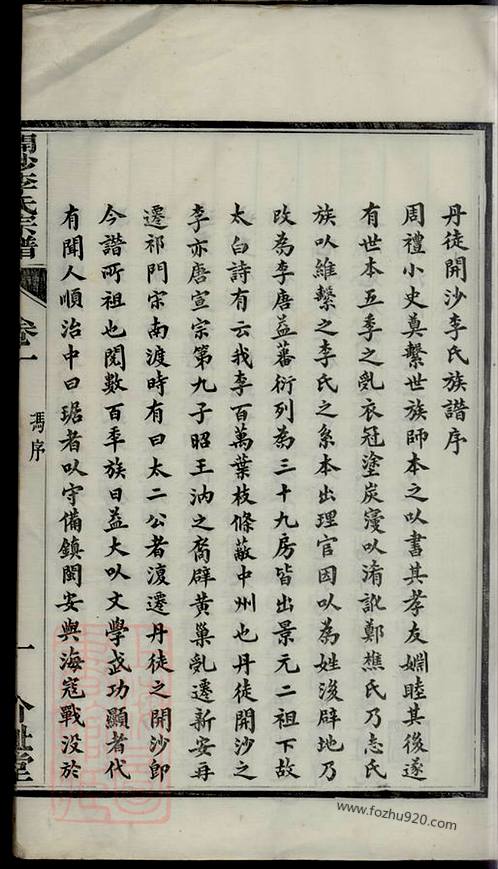 丹徒開沙李氏族譜序
周禮小史奠繫世族師本之以書其孝友婣睦其後遂
有世本五季之亂衣冠塗炭寖以淆訛鄭樵氏乃志氏
族以維繫之李氏之系本出理官因以為姓後辟地乃
改為李唐益蕃衍列為三十九房皆出景元二祖下故
太白詩有云我李百萬葉枝條蔽中州也丹徒開沙之
李亦唐宣宗第九子昭王汭之裔辟黃巢亂遷新安再
遷祁門宗南渡時有曰太二公者復遷丹徒之開沙即
今譜所祖也閱數百年族日益大以文學武功顯者代
有聞人順治中曰琚者以守備鎮閩安與海寇戰没於
開沙李氏宗譜
卷一
馮序
一
www.fozhu920.com